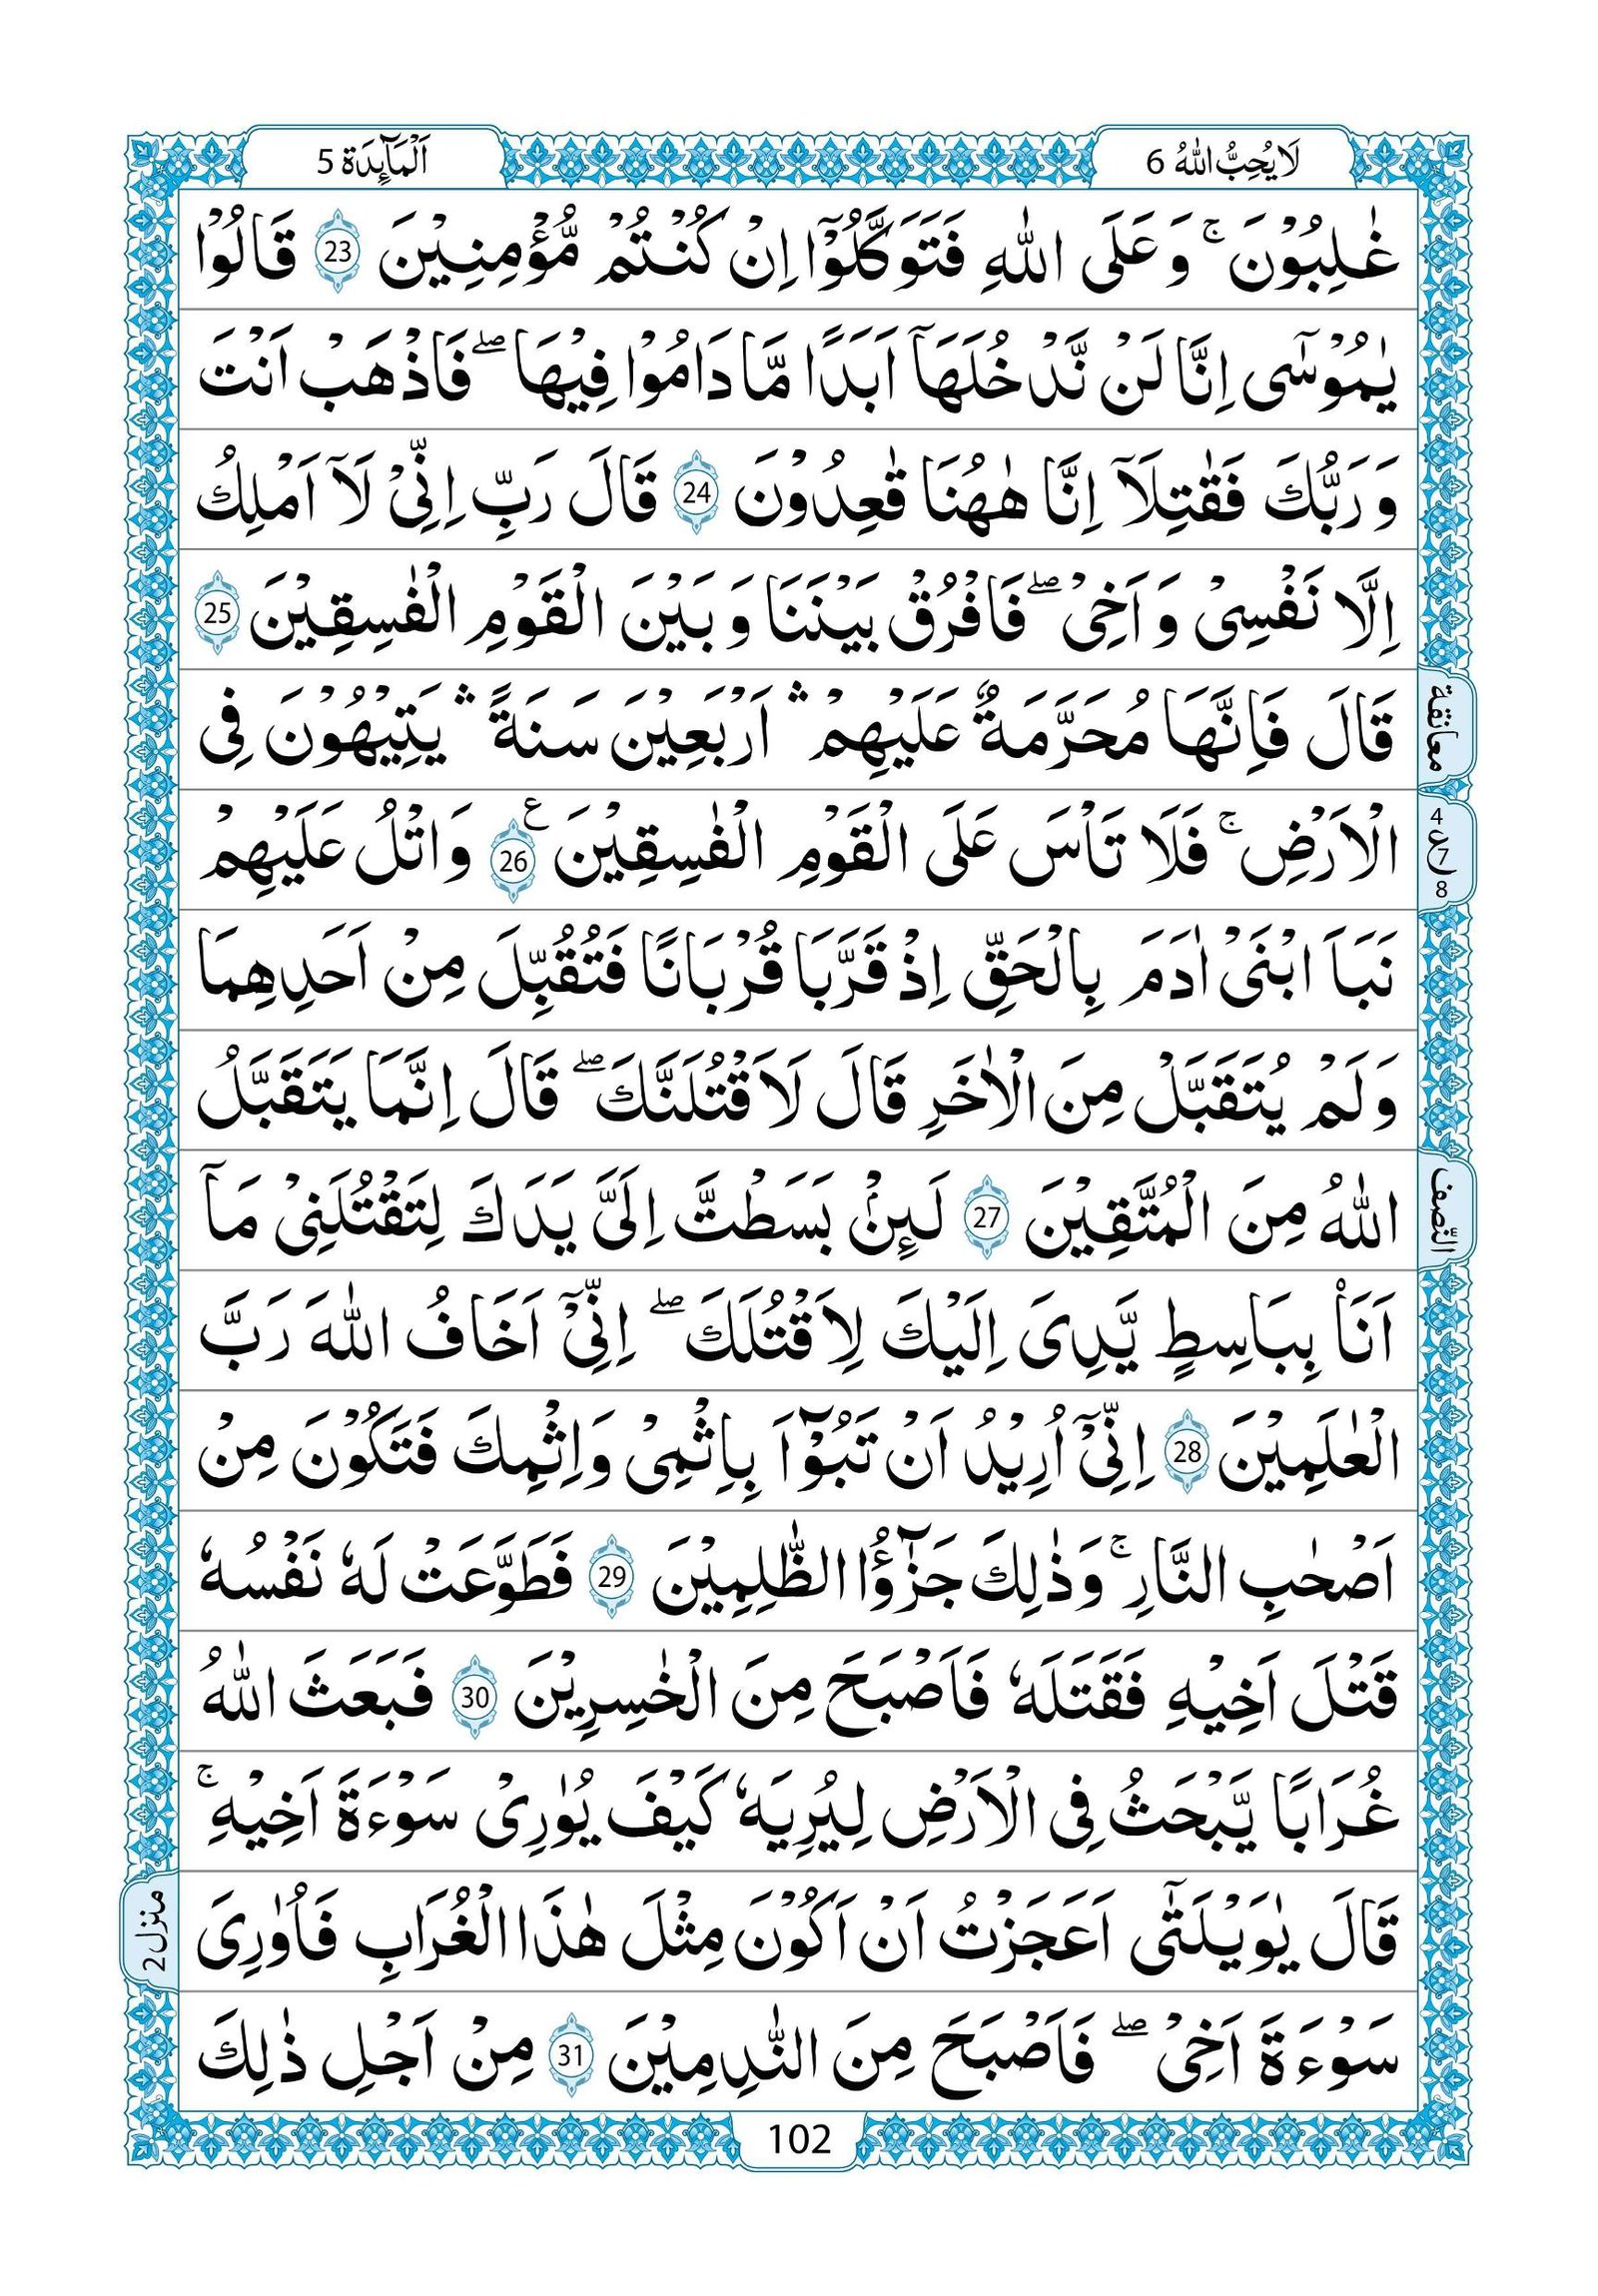 لَا يُحِبُّ اللّٰهُ 6
اَلْمَآئِدَة 5
غٰلِبُوْنَ ۚ وَعَلَى اللّٰهِ فَتَوَكَّلُوْۤا اِنْ كُنْتُمْ مُّؤْمِنِيْنَ 23 قَالُوْا
يٰمُوْسٰۤى اِنَّا لَنْ نَّدْخُلَهَاۤ اَبَدًا مَّا دَامُوْا فِيْهَا ۖ فَاذْهَبْ اَنْتَ
وَرَبُّكَ فَقَٰتِلَاۤ اِنَّا هٰهُنَا قٰعِدُوْنَ 24 قَالَ رَبِّ اِنِّىْ لَاۤ اَمْلِكُ
اِلَّا نَفْسِىْ وَاَخِىْ ۖ فَافْرُقْ بَيْنَنَا وَبَيْنَ الْقَوْمِ الْفٰسِقِيْنَ 25
قَالَ فَاِنَّهَا مُحَرَّمَةٌ عَلَيْهِمْ ۛ اَرْبَعِيْنَ سَنَةً ۛ يَتِيْهُوْنَ فِى
معانقة
الْاَرْضِ ۚ فَلَا تَاْسَ عَلَى الْقَوْمِ الْفٰسِقِيْنَ 26 ع وَاتْلُ عَلَيْهِمْ
4
ع 7
8
نَبَاَ ابْنَىْ اٰدَمَ بِالْحَقِّ اِذْ قَرَّبَا قُرْبَانًا فَتُقُبِّلَ مِنْ اَحَدِهِمَا
وَلَمْ يُتَقَبَّلْ مِنَ الْاٰخَرِ قَالَ لَاَقْتُلَنَّكَ ۖ قَالَ اِنَّمَا يَتَقَبَّلُ
اللّٰهُ مِنَ الْمُتَّقِيْنَ 27 لَئِنْۢ بَسَطْتَّ اِلَىَّ يَدَكَ لِتَقْتُلَنِىْ مَاۤ
النّصف
اَنَا۠ بِبَاسِطٍ يَّدِىَ اِلَيْكَ لِاَقْتُلَكَ ۖ اِنِّىْۤ اَخَافُ اللّٰهَ رَبَّ
الْعٰلَمِيْنَ 28 اِنِّىْۤ اُرِيْدُ اَنْ تَبُوْٓاَ بِاِثْمِىْ وَاِثْمِكَ فَتَكُوْنَ مِنْ
اَصْحٰبِ النَّارِ ۚ وَذٰلِكَ جَزٰٓؤُا الظّٰلِمِيْنَ 29 فَطَوَّعَتْ لَهٗ نَفْسُهٗ
قَتْلَ اَخِيْهِ فَقَتَلَهٗ فَاَصْبَحَ مِنَ الْخٰسِرِيْنَ 30 فَبَعَثَ اللّٰهُ
غُرَابًا يَّبْحَثُ فِى الْاَرْضِ لِيُرِيَهٗ كَيْفَ يُوٰرِىْ سَوْءَةَ اَخِيْهِ ۚ
قَالَ يٰوَيْلَتٰۤى اَعَجَزْتُ اَنْ اَكُوْنَ مِثْلَ هٰذَا الْغُرَابِ فَاُوٰرِىَ
منزل 2
سَوْءَةَ اَخِىْ ۖ فَاَصْبَحَ مِنَ النّٰدِمِيْنَ 31 مِنْ اَجْلِ ذٰلِكَ
102